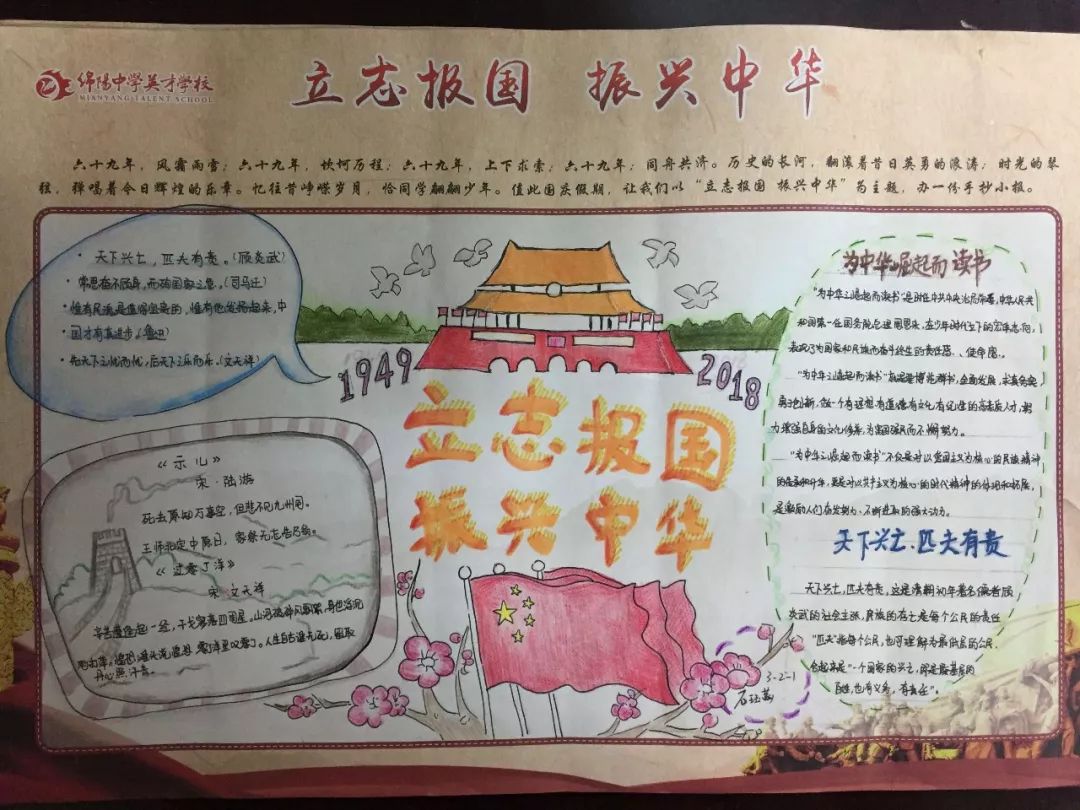 绵阳中学英才学校
MIANYANG TALENT SCHOOL
立志报国 振兴中华
六十九年，风霜雨雪；六十九年，坎坷历程；六十九年，上下求索；六十九年；同舟共济。历史的长河，翻滚着昔日英勇的浪涛；时光的琴
弦，弹唱着今日辉煌的乐章。忆往昔峥嵘岁月，恰同学翩翩少年。值此国庆假期，让我们以“立志报国 振兴中华”为主题，办一份手抄小报。
·天下兴亡，匹夫有责。（顾炎武）
·常思奋不顾身，而殉国家之急。（司马迁）
·惟有民魂是值得宝贵的，惟有他发扬起来，中
·国才有真进步。（鲁迅）
·先天下之忧而忧，后天下之乐而乐。（文天祥）
1949
2018
立志报国
振兴中华
《示儿》
宋·陆游
死去原知万事空，但悲不见九州同。
王师北定中原日，家祭无忘告乃翁。
《过零丁洋》
宋 文天祥
辛苦遭逢起一经，干戈寥落四周星。山河破碎风飘絮，身世浮沉
雨打萍。惶恐滩头说惶恐，零丁洋里叹零丁。人生自古谁无死，留取
丹心照汗青。
为中华崛起而读书
“为中华之崛起而读书”是时任中共中央总
和国第一任国务院总理周恩来，在少年时代立下的宏伟志向，
表现了为国家和民族而奋斗终生的责任感、使命感。
“为中华之崛起而读书”就是要博览群书，全面发展，求真务实
勇于创新，做一个有理想有道德有文化有纪律的高素质人才，努
力增强自身的文化修养，为富国强民而不懈努力。
“为中华之崛起而读书”不仅是对以爱国主义为核心的民族精神
的是对以为核心的时代精神的体现和拓展，
是激励人们奋发努力、不断进取的强大动力。
天下兴亡、匹夫有责
天下兴亡，匹夫有责，这是清朝初年著名儒者顾
炎武的社会主张，民族的存亡是每个公民的责任
“匹夫”指每个公民，也可理解为最底层的公民，
合起来是“一个国家的兴亡，即是最基层的
百姓，也有义务，有责任”。
3-2-1